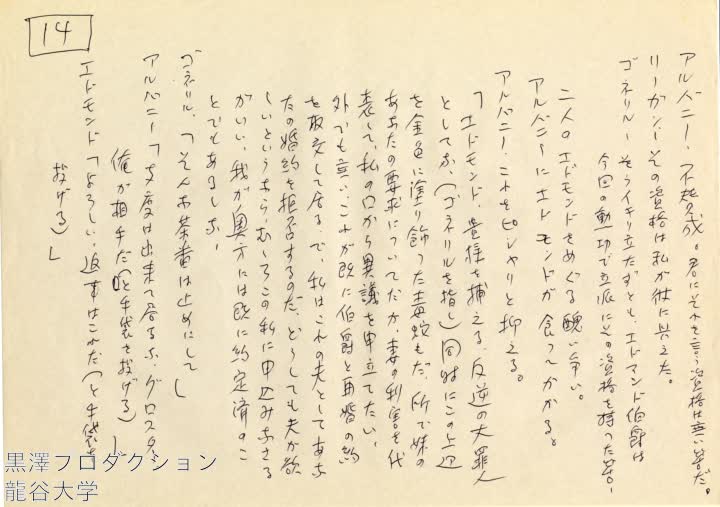 14
アルバニー、不賛成。君にそれを言う資格は無い筈だ。
リーガン、その資格は私が彼に与えた。
ゴネリル、そうイキリ立たずとも、エドマンド伯爵は
今回の勲功で立派にその資格を持った筈、
二人のエドモンドをめぐる醜い争い。
アルバニーにエドモンドが食ってかかる。
アルバニー、これをピシャリと抑える。
「エドモンド、貴様を捕える、反逆の大罪人
としてな、(ゴネリルを指し)同時にこの上辺
を金色に塗り飾った毒蛇もだ、所で妹の
あなたの要求についてだが、妻の利害を代
表して、私の口から異議を申立てたい、
外でも無い、これが既に伯爵と再婚の約
を取交して居るで、私はこれの夫としてあな
たの婚約を拒否するのだ、どうしても夫が欲
しいというならむしろこの私に申込みなさる
がいい、我が奥方には既に約定済のこ
とでもあるしな、
ゴネリル、「そんな茶番は止めにして」
アルバニー「支度は出来て居るな、グロスター
俺が相手だ(と手袋を投げる)」
エドモンド「よろしい、返事はこれだ(と手袋を
投げる)」
黒澤プロダクション
龍谷大学